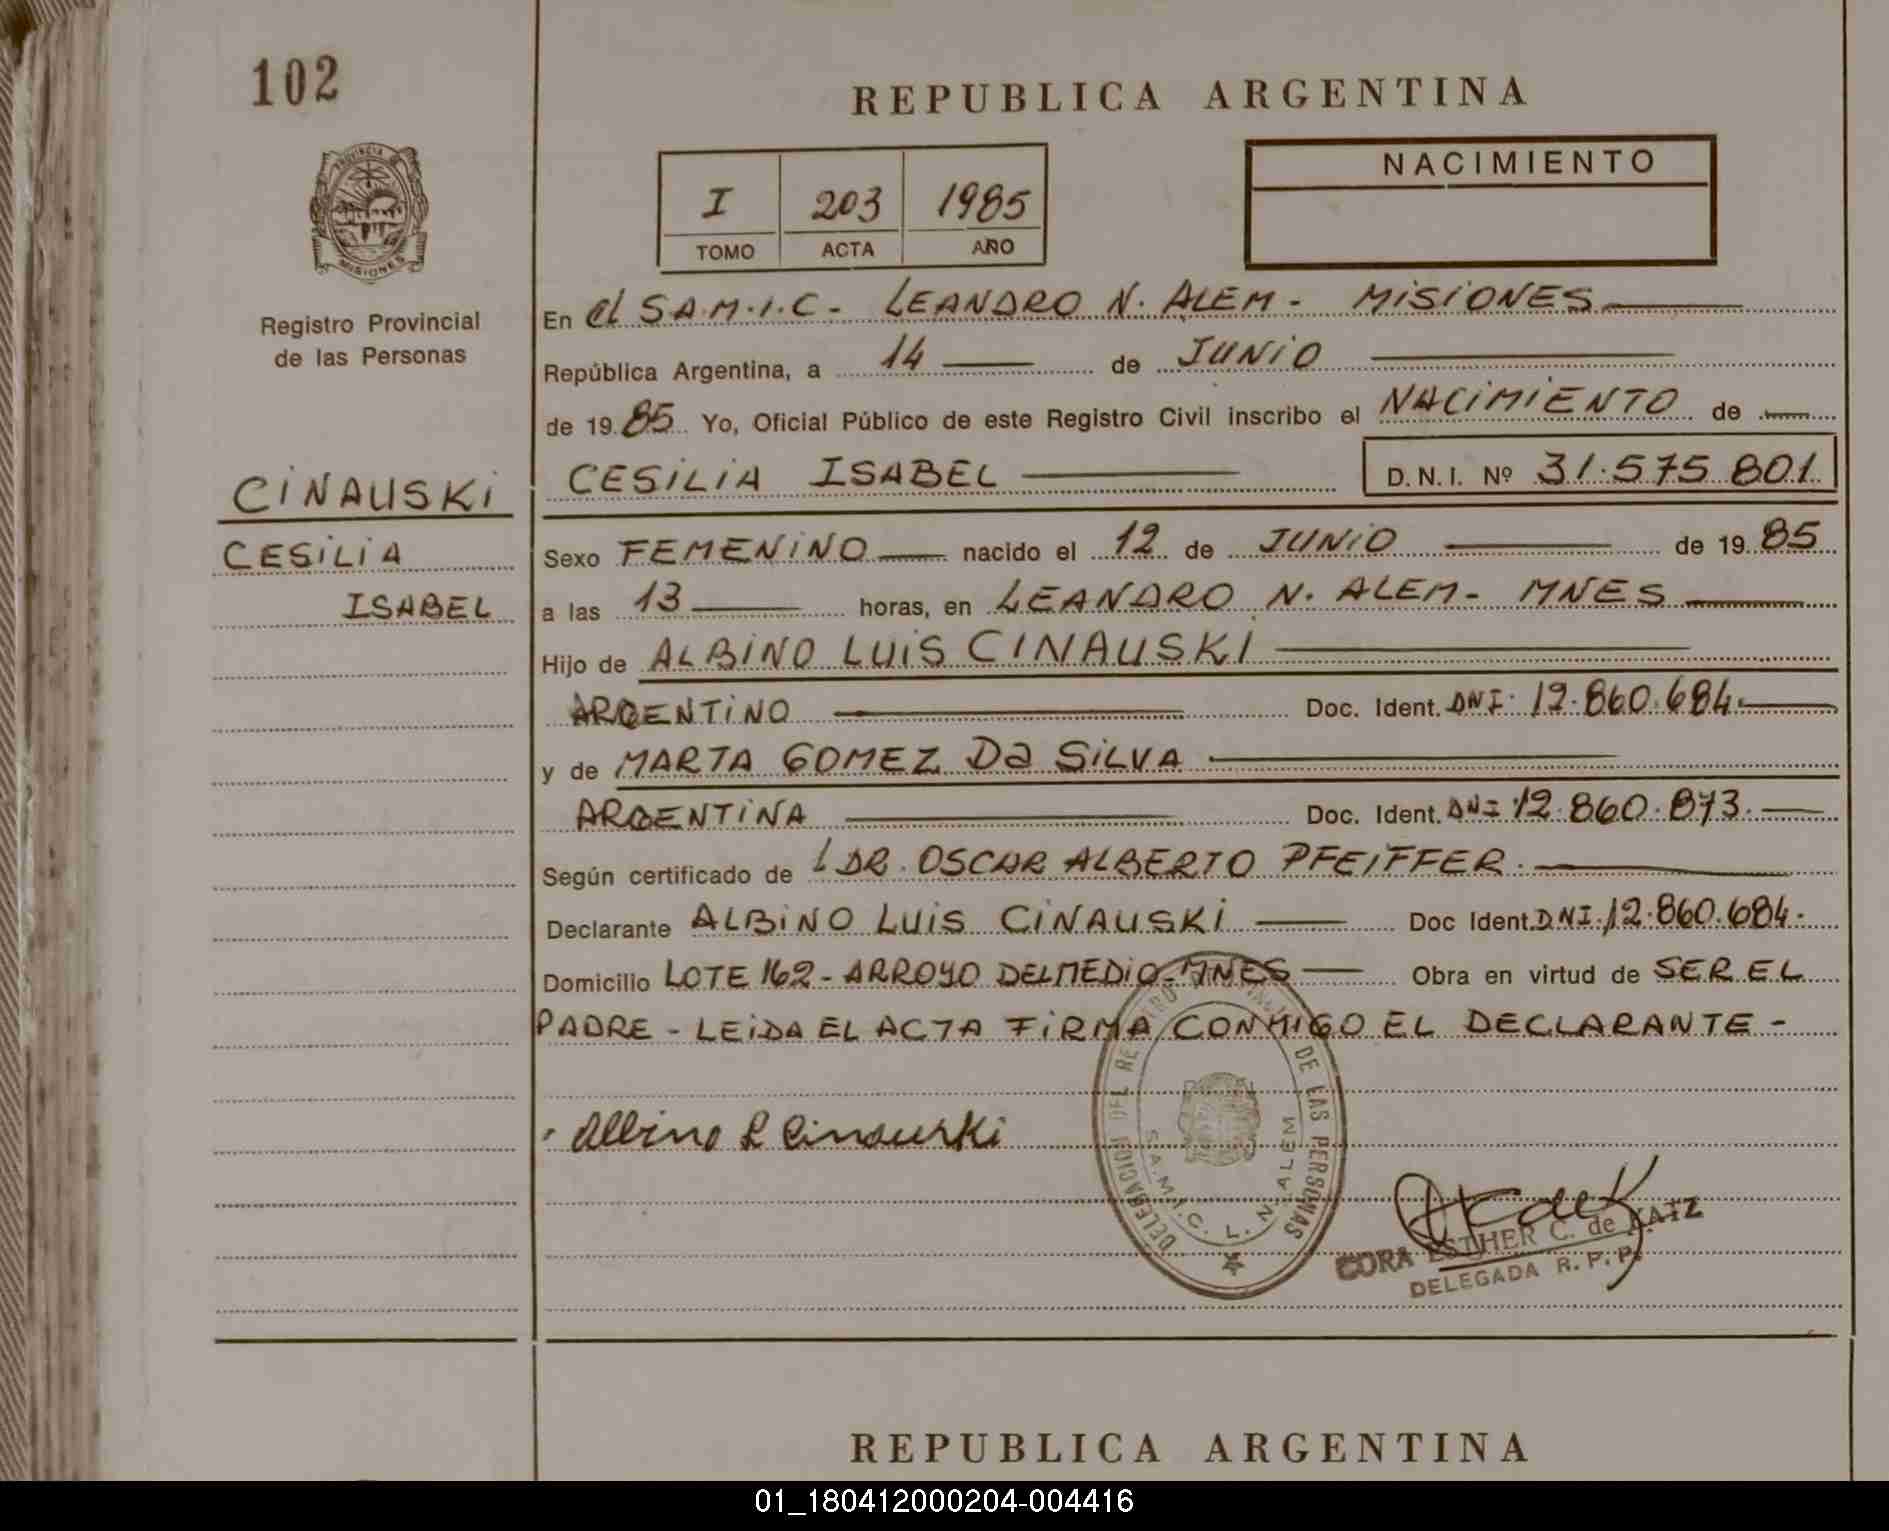 102
REPUBLICA ARGENTINA
PROVINCIA DE
MISIONES
I 203 1985
TOMO ACTA AÑO
NACIMIENTO
Registro Provincial
de las Personas
En el S.A.M.I.C- LEANDRO N. ALEM - MISIONES
República Argentina, a 14 de JUNIO
de 1985 Yo, Oficial Público de este Registro Civil inscribo el NACIMIENTO de
CINAUSKI
CESILIA ISABEL D.N.I. Nº 31.575 801.
CESILIA
ISABEL
Sexo FEMENINO nacido el 12 de JUNIO de 1985
a las 13 horas, en LEANDRO N. ALEM - MNES
Hijo de ALBINO LUIS CINAUSKI
ARGENTINO Doc. Ident. DNI: 12.860.684.
y de MARTA GOMEZ Da SILVA
ARGENTINA Doc. Ident. DNI 12.860.873.
Según certificado de DR. OSCAR ALBERTO PFEIFFER.
Declarante ALBINO LUIS CINAUSKI Doc Ident. DNI. 12.860.684.
Domicilio LOTE 162 - ARROYO DEL MEDIO - MNES Obra en virtud de SER EL
PADRE - LEIDA EL ACTA FIRMA CONMIGO EL DECLARANTE -
Albino L Cinauski
DELEGACION DEL REGISTRO PROVINCIAL DE LAS PERSONAS
S.A.M.I.C. L. N. ALEM
CORA ESTHER C. de KATZ
DELEGADA R.P.P.
REPUBLICA ARGENTINA
01_180412000204-004416